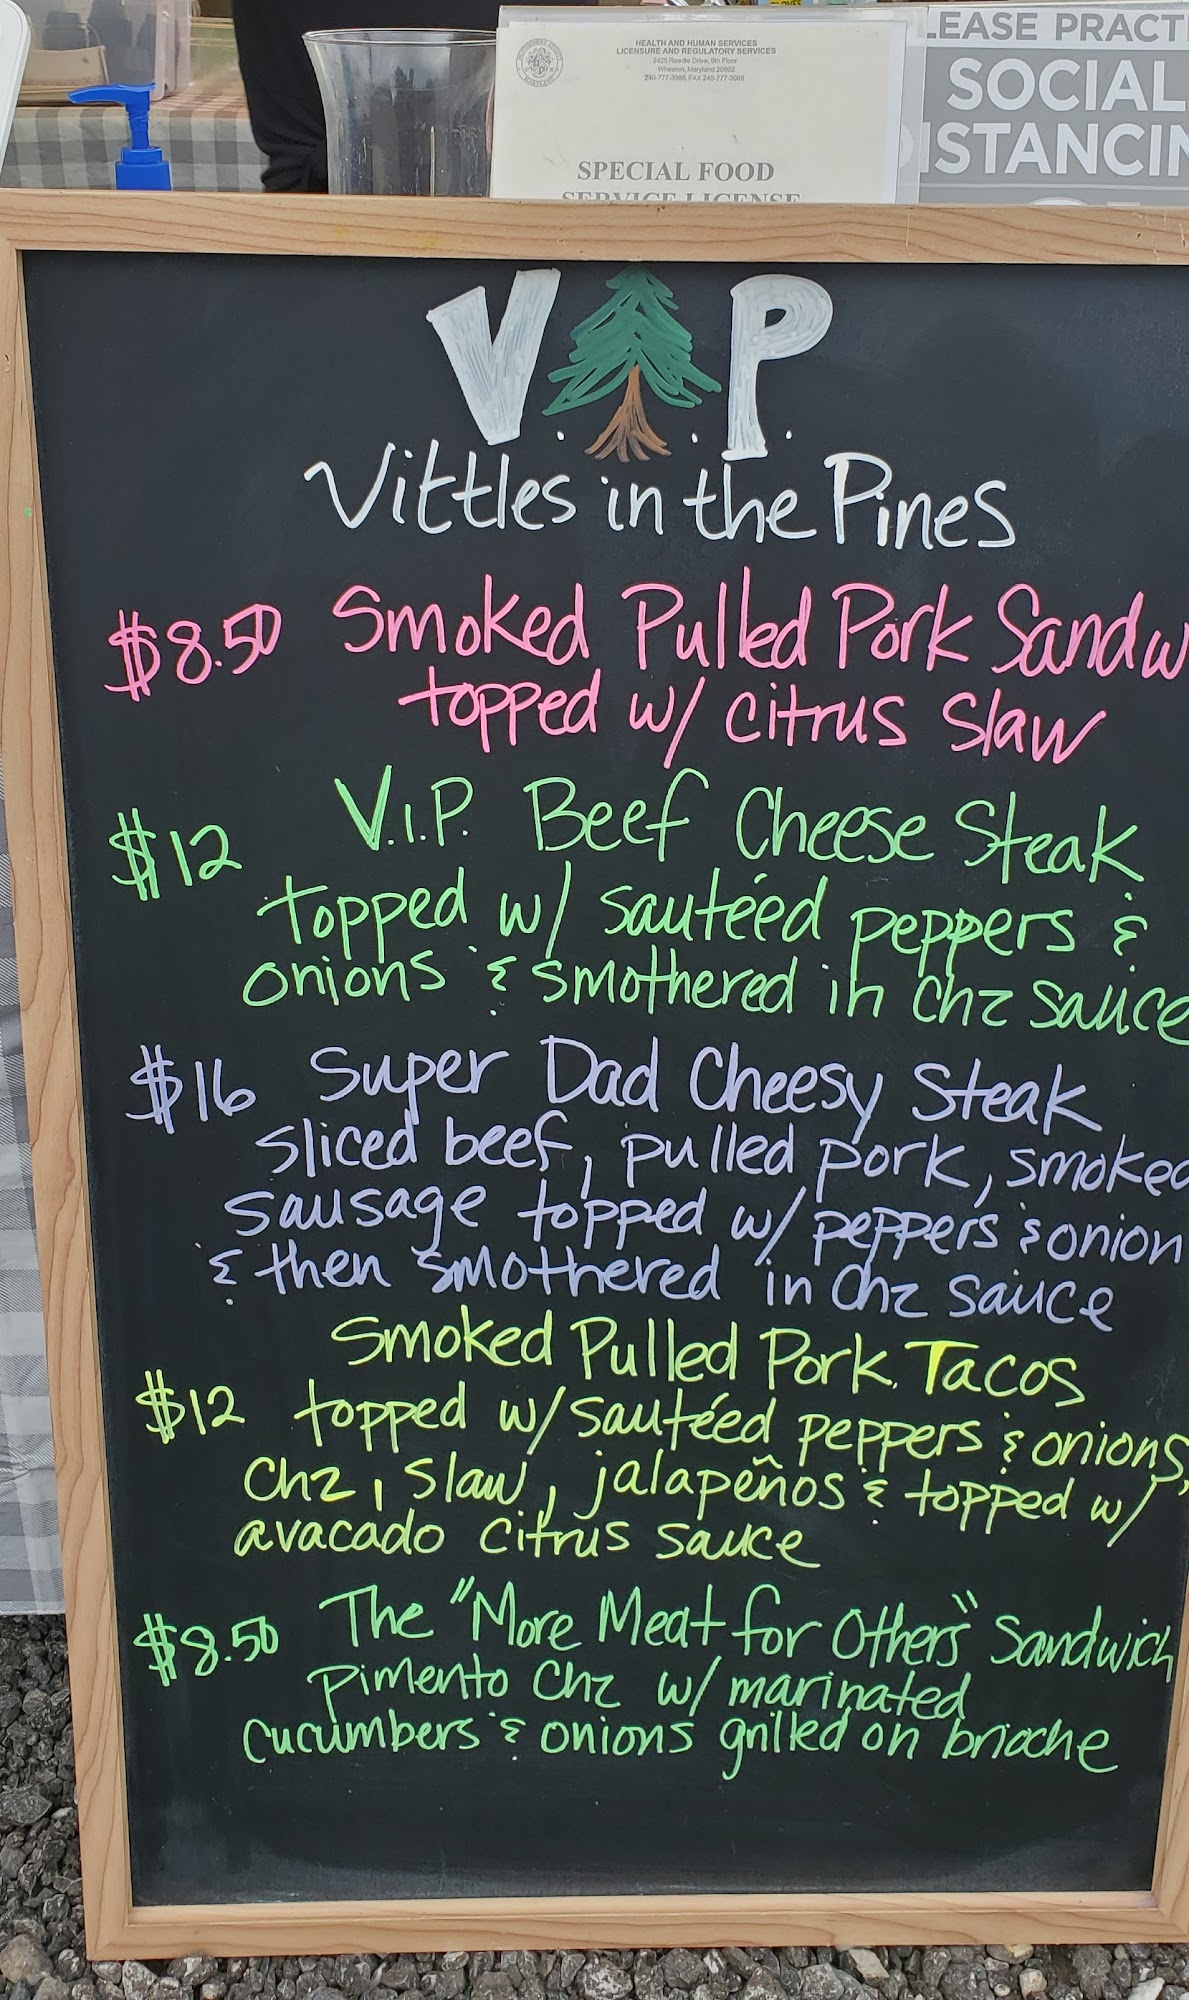 HEALTH AND HUMAN SERVICES
LICENSURE AND REGULATORY SERVICES
2425 Reedie Drive, 9th Floor
Wheaton, Maryland 20902
240-777-3986, FAX 240-777-3088
SPECIAL FOOD
SERVICE LICENSE
LEASE PRACTI
SOCIAL
ISTANCIN
V.I.P.
Vittles in the Pines
$8.50 Smoked Pulled Pork Sandw
topped w/ citrus slaw
$12 V.I.P. Beef Cheese Steak
topped w/ sautéed peppers &
onions & smothered in chz sauce
$16 Super Dad Cheesy Steak
sliced beef, pulled pork, smoked
sausage topped w/ peppers & onion
& then smothered in chz sauce
Smoked Pulled Pork Tacos
$12 topped w/ sautéed peppers & onions,
chz, slaw, jalapeños & topped w/
avacado citrus sauce
$8.50 The "More Meat for Others" Sandwich
pimento chz w/ marinated
cucumbers & onions grilled on brioche